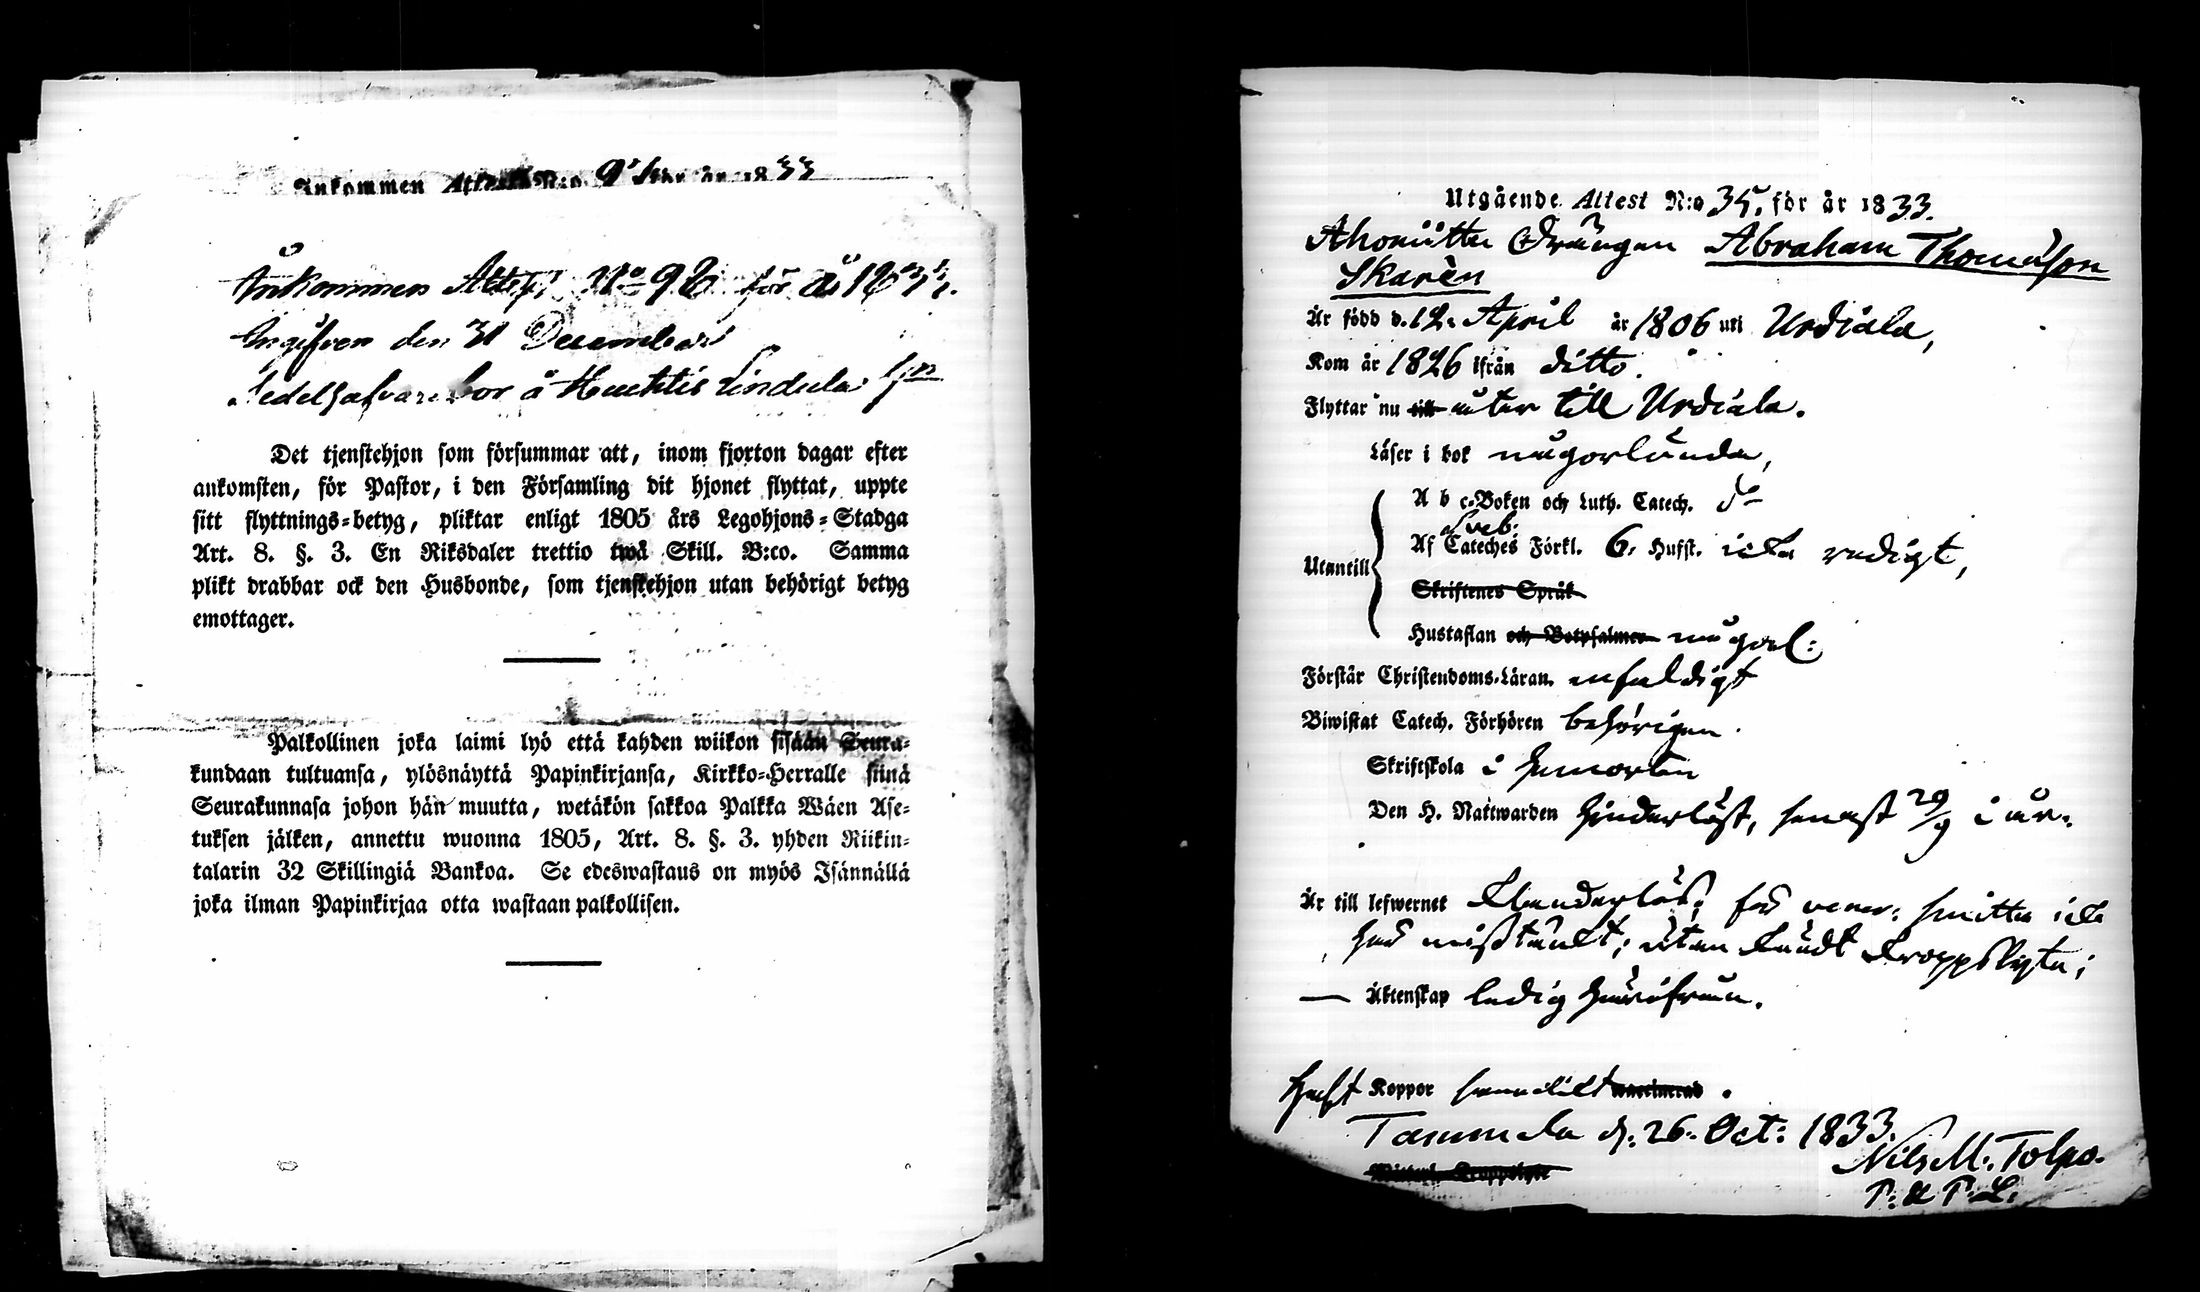 Ankommen Attest N:o 98 för år 1833
Ankommen Attest No 98 för år 1833.
Ingifven den 31 December
Sedelhafvaren bor å Huhtis Lindula
Det tjenstehjon som försummar att, inom fjorton dagar efter
ankomsten, för Pastor, i den Församling dit hjonet flyttat, uppte
sitt flyttnings-betyg, pliktar enligt 1805 års Legohjons-Stadga
Art. 8. §. 3. En Riksdaler trettio twå Skill. B:co. Samma
plikt drabbar ock den Husbonde, som tjenstehjon utan behörigt betyg
emottager.
Palkollinen joka laimi lyö että kahden wiikon sisään Seura-
kundaan tultuansa, ylösnäyttä Papinkirjansa, Kirkko-Herralle siinä
Seurakunnasa johon hän muutta, wetäkön sakkoa Palkka Wäen Ase-
tuksen jälken, annettu wuonna 1805, Art. 8. §. 3. yhden Riikin-
talarin 32 Skillingiä Bankoa. Se edeswastaus on myös Isännällä
joka ilman Papinkirjaa otta wastaan palkollisen.
Utgående Attest N:o 35. för år 1833.
Drängen Abraham Thomasson
Skarèn
Är född d. 12. April år 1806 uti Urdiala,
Kom år 1826 ifrån ditto.
Flyttar nu till åter till Urdiala.
Läser i bok någorlunda,
A b c-Boken och Luth. Catech. do
Sveb:
Af Cateches Förkl. 6. Hufst. icke redigt,
Utantill
Skriftenes Språk
Hustaflan och Botpsalmer någorl:
Förstår Christendoms-Läran. enfaldigt
Biwistat Catech. Förhören behörigen.
Skriftskola i hemorten
Den H. Nattwarden hinderlöst, senast 29/9 i år.
Är till lefwernet klanderlös; för vener: smitta icke
har misstänkt; utan känd kroppslyte;
— Äktenskap ledig härifrån.
Haft Koppor
Tammela d. 26. Oct: 1833.
Nils M. Tolpo.
P. & P. L.